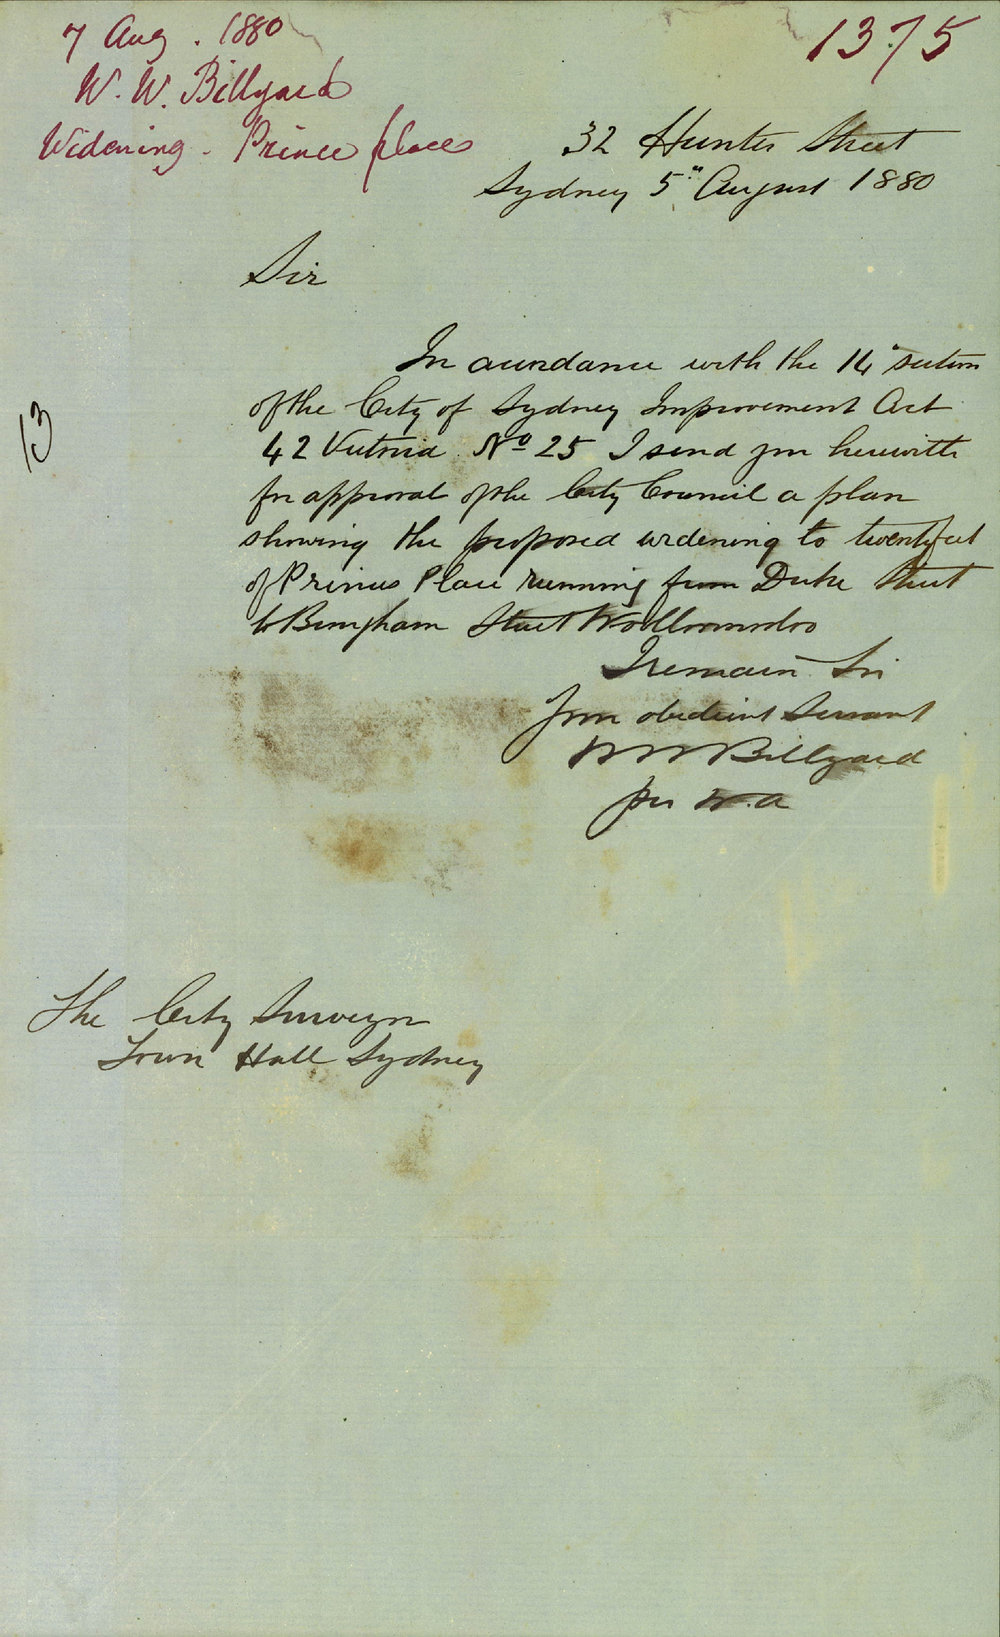 7 Aug. 1880
W. W. Billyard
Widening - Prince place
1375
32 Hunter Street
Sydney 5th August 1880
Sir
In accordance with the 14 section
of the City of Sydney Improvement Act
42 Victoria No 25 I send you herewith
for approval of the City Council a plan
showing the proposed widening to twenty feet
of Princes Place running from Duke Street
to Bingham Street Woolloomooloo
I remain Sir
Your obedient Servant
W W Billyard
per W. A
13
The City Surveyor
Town Hall Sydney